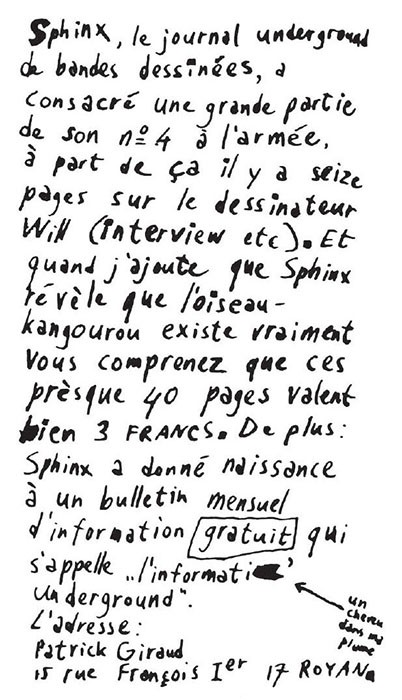 Sphinx, le journal underground
de bandes dessinées, a
consacré une grande partie
de son nº 4 à l'armée,
à part de ça il y a seize
pages sur le dessinateur
Will (interview etc). Et
quand j'ajoute que Sphinx
révèle que l'oiseau-
kangourou existe vraiment
vous comprenez que ces
prèsque 40 pages valent
bien 3 FRANCS. De plus:
Sphinx a donné naissance
à un bulletin mensuel
d'information gratuit qui
s'appelle „l'informati
underground".
un
cheveu
dans ma
plume
L'adresse:
Patrick Giraud
15 rue François Ier 17 ROYAN